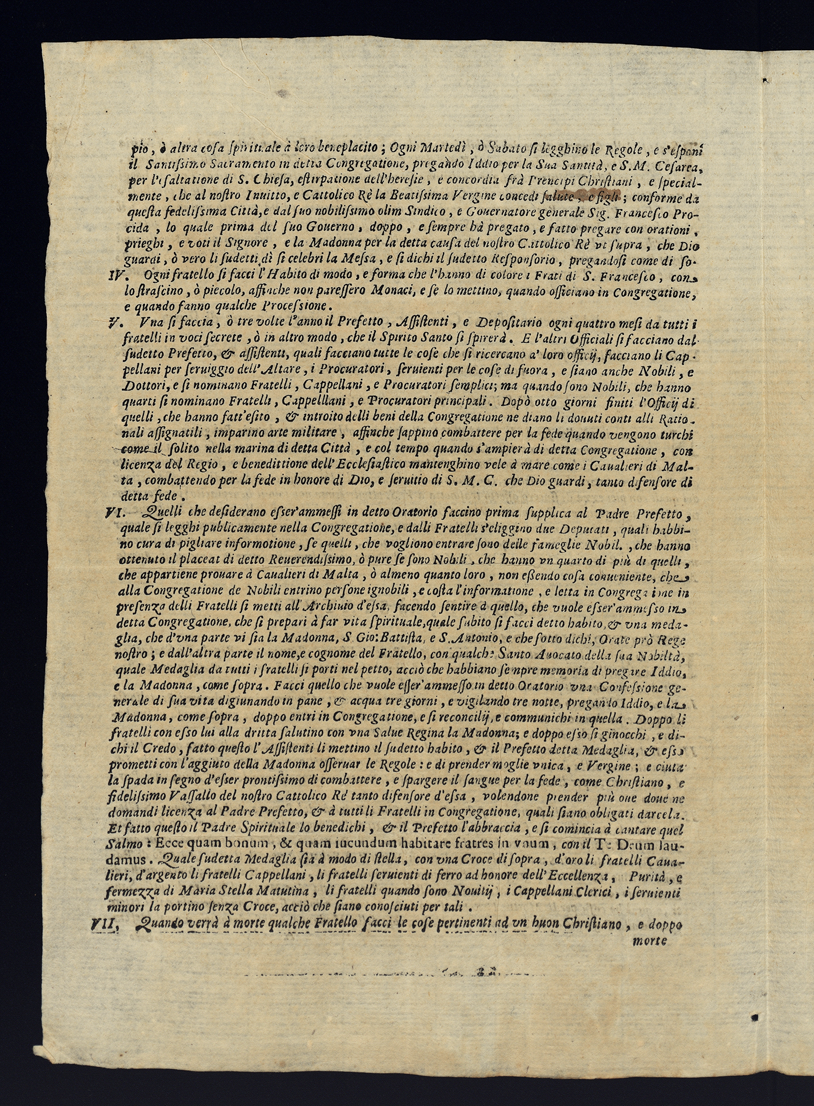 pio, ò altra cosa spirituale à loro beneplacito; Ogni Martedì, ò Sabato si legghino le Regole, e s'esponi
il Santissimo Sacramento in detta Congregatione, pregando Iddio per la Sua Santità, e S.M. Cesarea,
per l'esaltatione di S. Chiesa, estirpatione dell'heresie, e concordia frà Prencipi Christiani, e special-
mente, che al nostro Inuitto, e Cattolico Rè la Beatissima Vergine concedi salute, e figli; conforme da
questa fedelissima Città, e dal suo nobilissimo olim Sindico, e Gouernatore generale Sig. Francesco Pro-
cida, lo quale prima del suo Gouerno, doppo, e sempre hà pregato, e fatto pregare con orationi,
prieghi, e voti il Signore, e la Madonna per la detta causa del nostro Cattolico Rè vt supra, che Dio
guardi, ò vero li sudetti dì si celebri la Messa, e si dichi il sudetto Responsorio, pregandosi come di so-
IV. Ogni fratello si facci l'Habito di modo, e forma che l'hanno di colore i Frati di S. Francesco, con
lo strascino, ò piccolo, affinche non paressero Monaci, e se lo mettino, quando officiano in Congregatione,
e quando fanno qualche Processione.
V. Vna si faccia, ò tre volte l'anno il Prefetto, Assistenti, e Depositario ogni quattro mesi da tutti i
fratelli in voci secrete, ò in altro modo, che il Spirito Santo si spirerà. E l'altri Officiali si facciano dal
sudetto Prefetto, & assistenti, quali facciano tutte le cose che si ricercano a' loro officij, facciano li Cap-
pellani per seruiggio dell'Altare, i Procuratori, seruienti per le cose di fuora, e siano anche Nobili, e
Dottori, e si nominano Fratelli, Cappellani, e Procuratori semplici; ma quando sono Nobili, che hanno
quarti si nominano Fratelli, Cappelllani, e Procuratori principali. Dopò otto giorni finiti l'Officij di
quelli, che hanno fatt'esito, & introito delli beni della Congregatione ne diano li douuti conti alli Ratio-
nali assignatili, imparino arte militare, affinche sappino combattere per la fede quando vengono turchi
come il solito nella marina di detta Città, e col tempo quando s'ampierà di detta Congregatione, con
licenza del Regio, e benedittione dell'Ecclesiastico mantenghino vele à mare come i Caualieri di Mal-
ta, combattendo per la fede in honore di Dio, e seruitio di S. M. C. che Dio guardi, tanto difensore di
detta fede.
VI. Quelli che desiderano esser'ammessi in detto Oratorio faccino prima supplica al Padre Prefetto,
quale si legghi publicamente nella Congregatione, e dalli Fratelli s'eliggino due Deputati, quali habbi-
no cura di pigliare informotione, se quelli, che vogliono entrare sono delle fameglie Nobil., che hanno
ottenuto il placeat di detto Reuerendissimo, ò pure se sono Nobili, che hanno vn quarto di più di quelli,
che appartiene prouare à Caualieri di Malta, ò almeno quanto loro, non essendo cosa conueniente, che
alla Congregatione de Nobili entrino persone ignobili, e costa l'informatione, e letta in Congregatione in
presenza delli Fratelli si metti all'Archiuio d'essa, facendo sentire à quello, che vuole esser'ammesso in
detta Congregatione, che si prepari à far vita spirituale, quale subito si facci detto habito, & vna meda-
glia, che d'vna parte vi sia la Madonna, S. Gio: Battista, e S. Antonio, e che sotto dichi, Orate prò Rege
nostro; e dall'altra parte il nome, e cognome del Fratello, con qualche Santo Auocato della sua Nobiltà,
quale Medaglia da tutti i fratelli si porti nel petto, acciò che habbiano sempre memoria di pregare Iddio,
e la Madonna, come sopra. Facci quello che vuole esser'ammesso in detto Oratorio vna Confessione ge-
nerale di sua vita digiunando in pane, & acqua tre giorni, e vigilando tre notte, pregando Iddio, e la
Madonna, come sopra, doppo entri in Congregatione, e si reconcilij, e communichi in quella. Doppo li
fratelli con esso lui alla dritta salutino con vna Salue Regina la Madonna; e doppo esso si ginocchi, e di-
chi il Credo, fatto questo l'Assistenti li mettino il sudetto habito, & il Prefetto detta Medaglia, & esso
prometti con l'aggiuto della Madonna osseruar le Regole: e di prender moglie vnica, e Vergine; e ciuta
la spada in segno d'esser prontissimo di combattere, e spargere il sangue per la fede, come Christiano, e
fidelissimo Vassallo del nostro Cattolico Rè tanto difensore d'essa, volendone prender più one doue ne
domandi licenza al Padre Prefetto, & à tutti li Fratelli in Congregatione, quali siano obligati darcela.
Et fatto questo il Padre Spirituale lo benedichi, & il Prefetto l'abbraccia, e si comincia à cantare quel
Salmo: Ecce quam bonum, & quam iucundum habitare fratres in vnum, con il Te Deum lau-
damus. Quale sudetta Medaglia sia à modo di stella, con vna Croce di sopra, d'oro li fratelli Caua-
lieri, d'argento li fratelli Cappellani, li fratelli seruienti di ferro ad honore dell'Eccellenza, Purità, e
fermezza di Maria Stella Matutina, li fratelli quando sono Nouitij, i Cappellani Clerici, i seruienti
minori la portino senza Croce, acciò che siano conosciuti per tali.
VII. Quando verrà à morte qualche Fratello facci le cose pertinenti ad vn buon Christiano, e doppo
morte